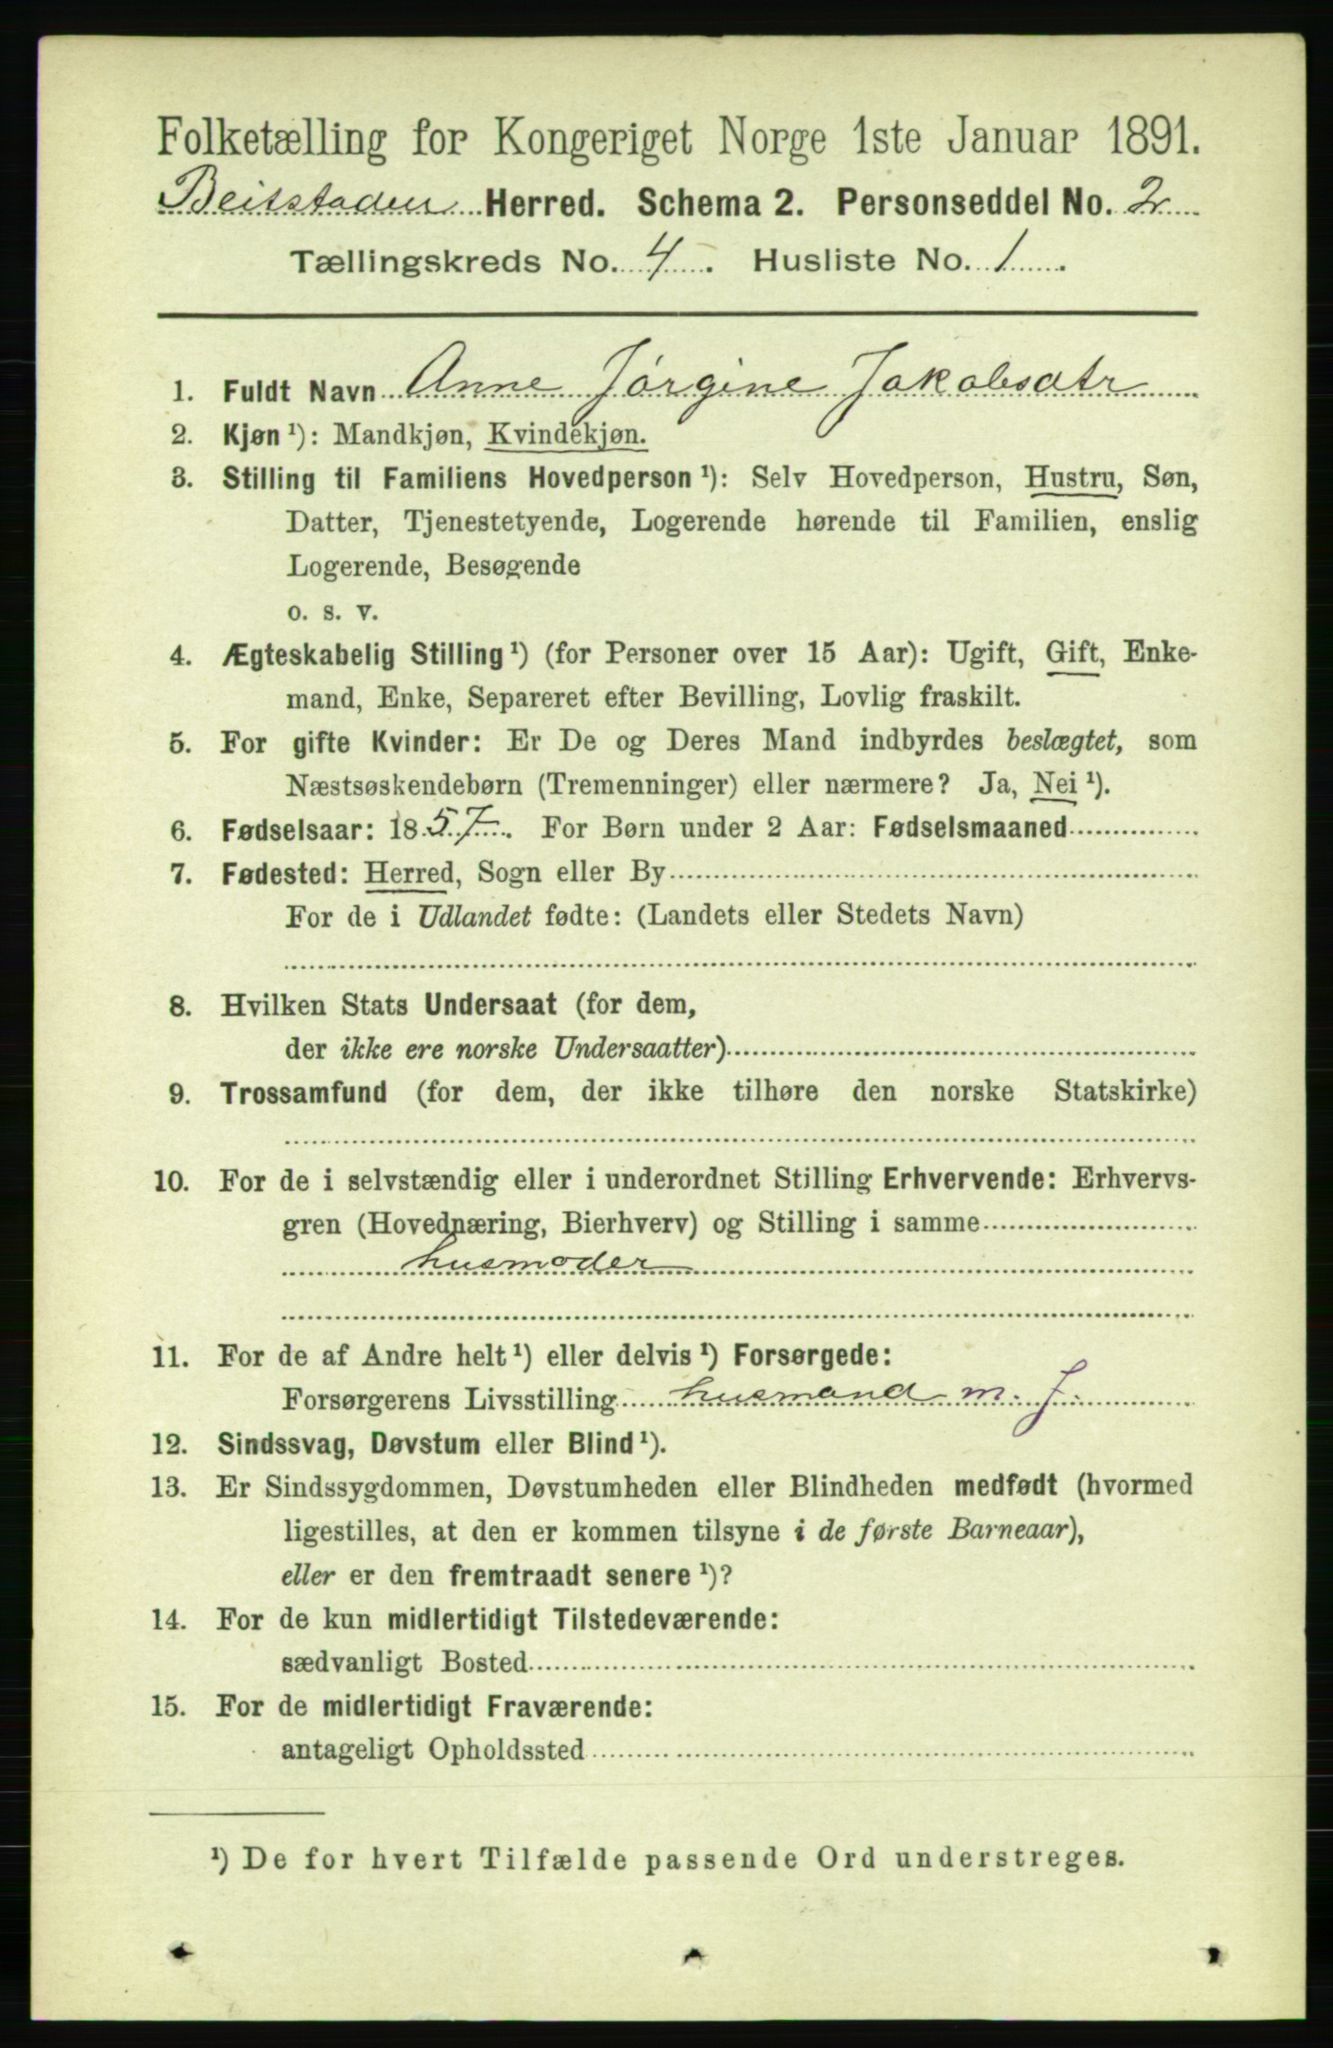 Folketælling for Kongeriget Norge 1ste Januar 1891.
Beitstaden Herred. Schema 2. Personseddel No. 2
Tællingskreds No. 4. Husliste No. 1.
1. Fuldt Navn Anne Jørgine Jakobsdtr
2. Kjøn ¹): Mandkjøn, Kvindekjøn.
3. Stilling til Familiens Hovedperson ¹): Selv Hovedperson, Hustru, Søn,
Datter, Tjenestetyende, Logerende hørende til Familien, enslig
Logerende, Besøgende
o. s. v.
4. Ægteskabelig Stilling ¹) (for Personer over 15 Aar): Ugift, Gift, Enke-
mand, Enke, Separeret efter Bevilling, Lovlig fraskilt.
5. For gifte Kvinder: Er De og Deres Mand indbyrdes beslægtet, som
Næstsøskendebørn (Tremenninger) eller nærmere? Ja, Nei ¹).
6. Fødselsaar: 1857. For Børn under 2 Aar: Fødselsmaaned
7. Fødested: Herred, Sogn eller By
For de i Udlandet fødte: (Landets eller Stedets Navn)
8. Hvilken Stats Undersaat (for dem,
der ikke ere norske Undersaatter)
9. Trossamfund (for dem, der ikke tilhøre den norske Statskirke)
10. For de i selvstændig eller i underordnet Stilling Erhvervende: Erhvervs-
gren (Hovednæring, Bierhverv) og Stilling i samme
husmoder
11. For de af Andre helt ¹) eller delvis ¹) Forsørgede:
Forsørgerens Livsstilling husmand m. J.
12. Sindssvag, Døvstum eller Blind ¹).
13. Er Sindssygdommen, Døvstumheden eller Blindheden medfødt (hvormed
ligestilles, at den er kommen tilsyne i de første Barneaar),
eller er den fremtraadt senere ¹)?
14. For de kun midlertidigt Tilstedeværende:
sædvanligt Bosted
15. For de midlertidigt Fraværende:
antageligt Opholdssted
¹) De for hvert Tilfælde passende Ord understreges.